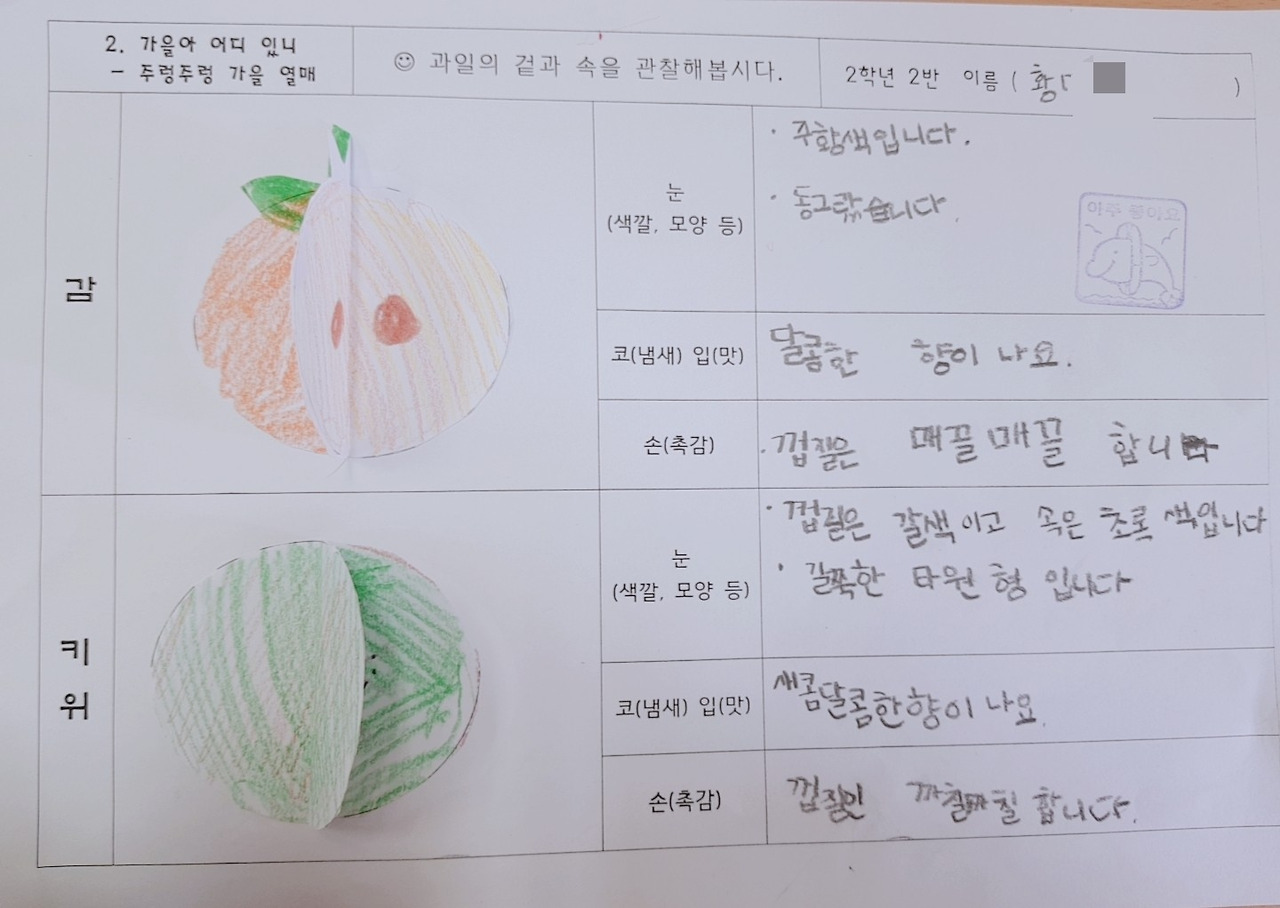 2. 가을아 어디 있니
- 주렁주렁 가을 열매
☺ 과일의 겉과 속을 관찰해봅시다.
2학년 2반 이름 ( 황 )
감
눈
(색깔, 모양 등)
· 주황색입니다.
· 동그랗습니다.
아주 좋아요
코(냄새) 입(맛)
달콤한 향이 나요.
손(촉감)
· 껍질은 매끌매끌 합니다
키위
눈
(색깔, 모양 등)
· 껍질은 갈색이고 속은 초록색입니다
· 길쭉한 타원형 입니다
코(냄새) 입(맛)
새콤달콤한향이 나요.
손(촉감)
껍질인 까칠까칠 합니다.